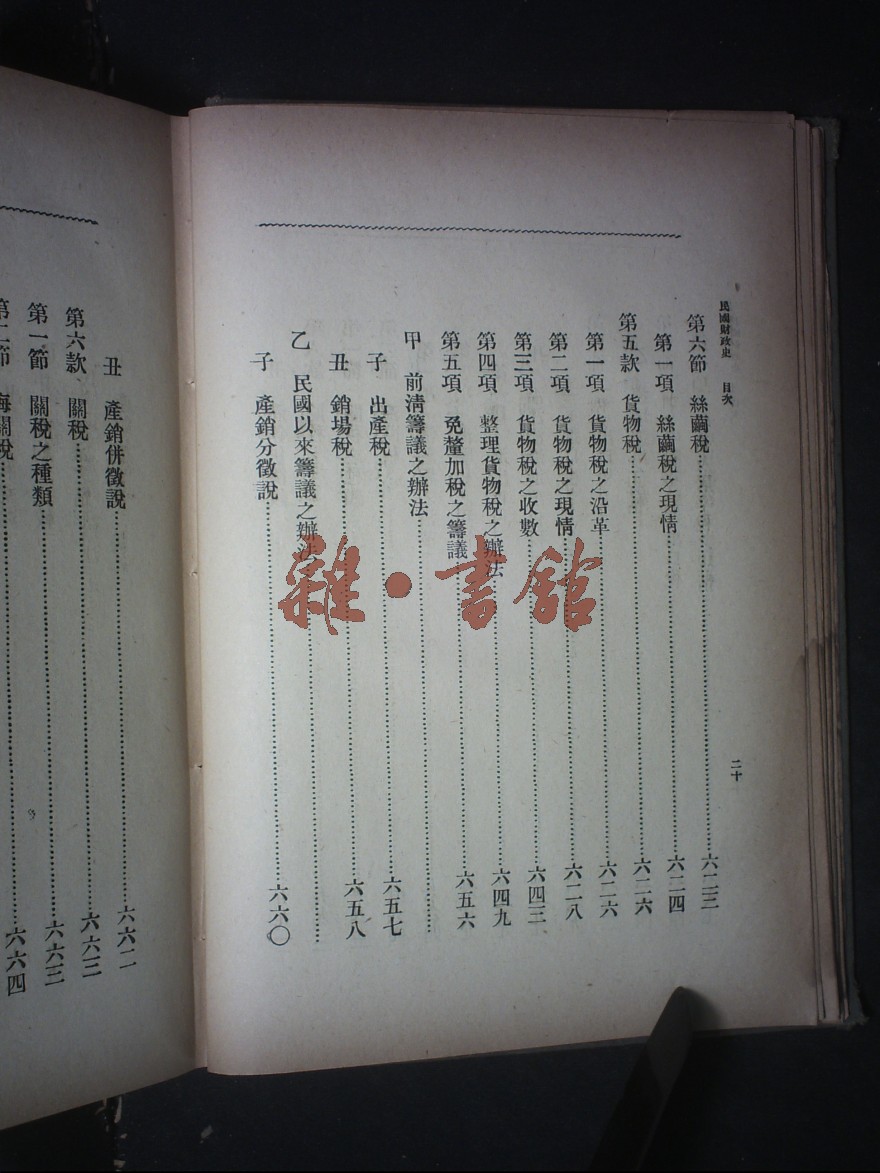 民國財政史 目次
二十
第六節 絲繭稅……六二三
第一項 絲繭稅之現情……六二四
第五款 貨物稅……六二六
第一項 貨物稅之沿革……六二六
第二項 貨物稅之現情……六二八
第三項 貨物稅之收數……六四三
第四項 整理貨物稅之辦法……六四九
第五項 免釐加稅之籌議……六五六
甲 前淸籌議之辦法……
子 出產稅……六五七
丑 銷場稅……六五八
乙 民國以來籌議之辦法……
子 產銷分徵說……六六〇
丑 產銷併徵說……六六二
第六款 關稅……六六三
第一節 關稅之種類……六六三
第二節 海關稅……六六四
雜·書館